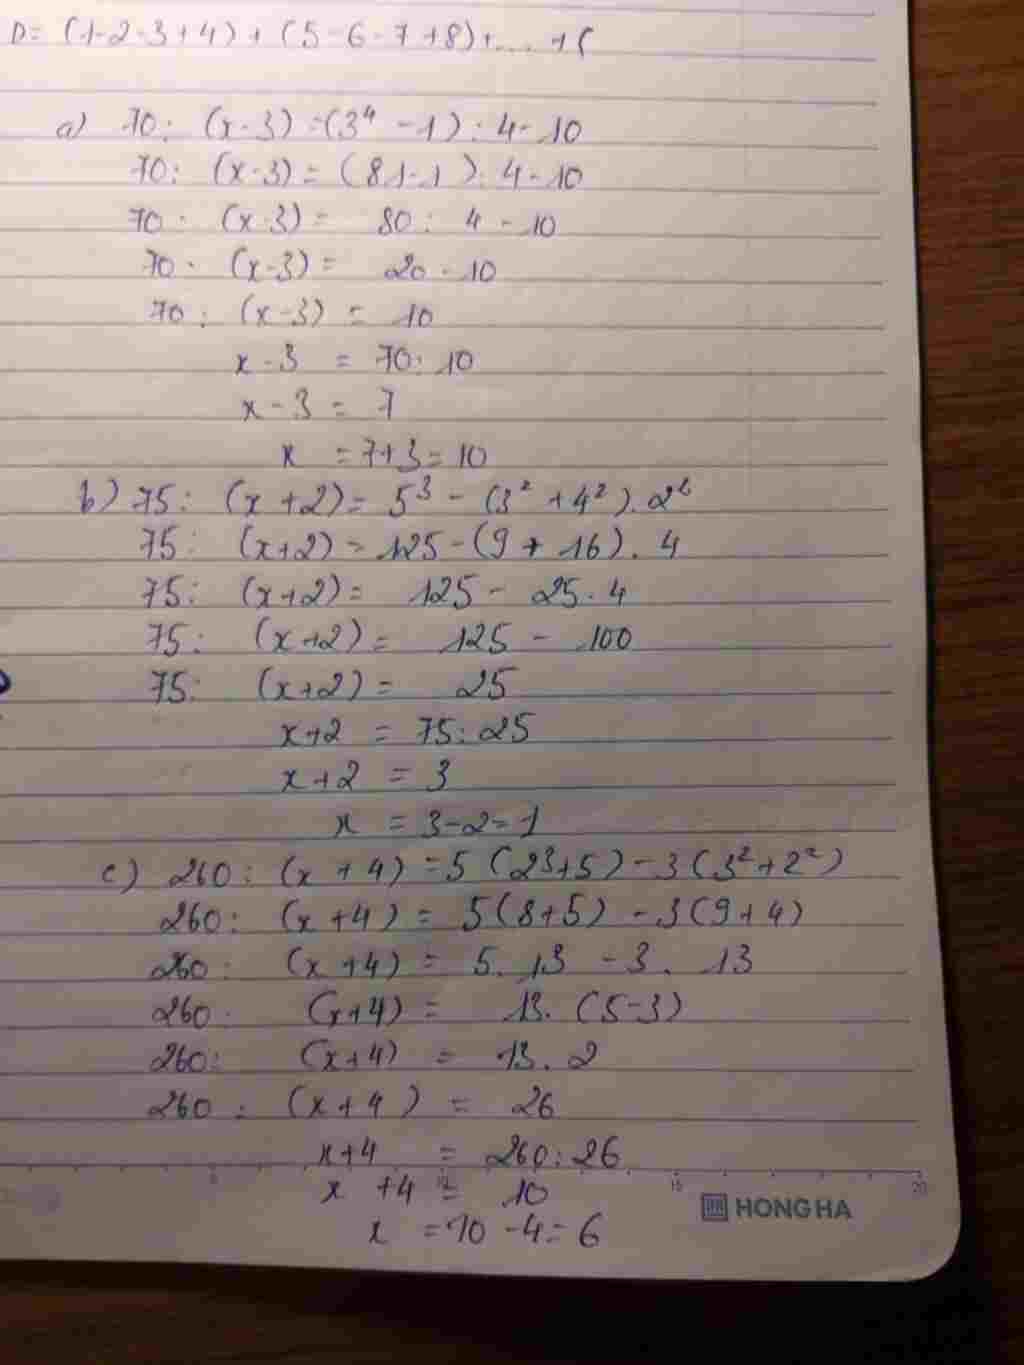 D= (1-2-3+4) + (5-6-7+8)+... +(
a) 70: (x-3) =(3⁴ -1) : 4-10
70: (x-3) = (81-1): 4-10
70: (x-3) = 80: 4 - 10
70: (x-3) = 20 - 10
70: (x-3) = 10
x - 3 = 70: 10
x - 3 = 7
x = 7+3=10
b) 75: (x+2)= 5³ - (3² +4²).2²
75: (x+2) = 125-(9+16). 4
75: (x+2) = 125- 25.4
75: (x+2) = 125 - 100
75: (x+2) = 25
x+2 = 75:25
x+2 = 3
x = 3-2=1
c) 260: (x+4) =5 (2³+5) -3(3²+2²)
260: (x+4) = 5(8+5) -3(9+4)
260: (x+4) = 5. 13 -3. 13
260: (x+4) = 13. (5-3)
260: (x+4) = 13. 2
260: (x+4) = 26
x+4 = 260:26
x +4 = 10
x =10 -4= 6
15
20
HONG HA